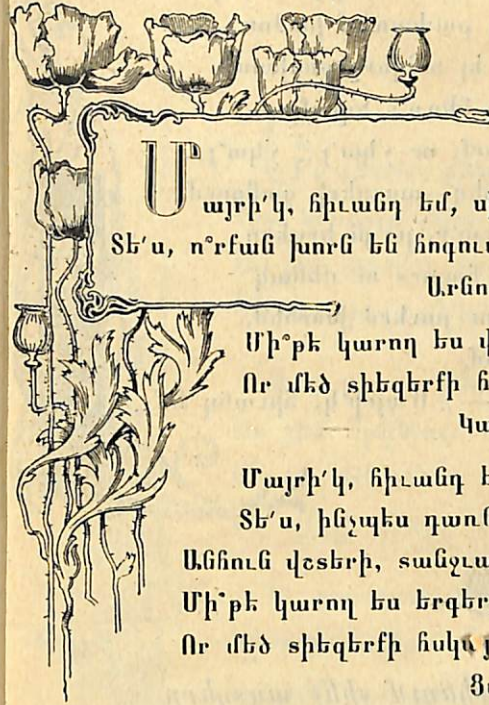 Մայրի՛կ, հիւանդ եմ, ս
Տե՛ս, ո՜րքան խորն են հոգու
Արնո
Մի՞թէ կարող ես վ
Որ մեծ տիեզերքի հ
Կա
Մայրի՛կ, հիւանդ ե
Տե՛ս, ինչպես դառն
Անհուն վշտերի, տանջւա
Մի՞թէ կարող ես երգեր
Որ մեծ տիեզերքի հսկայ
Ցա